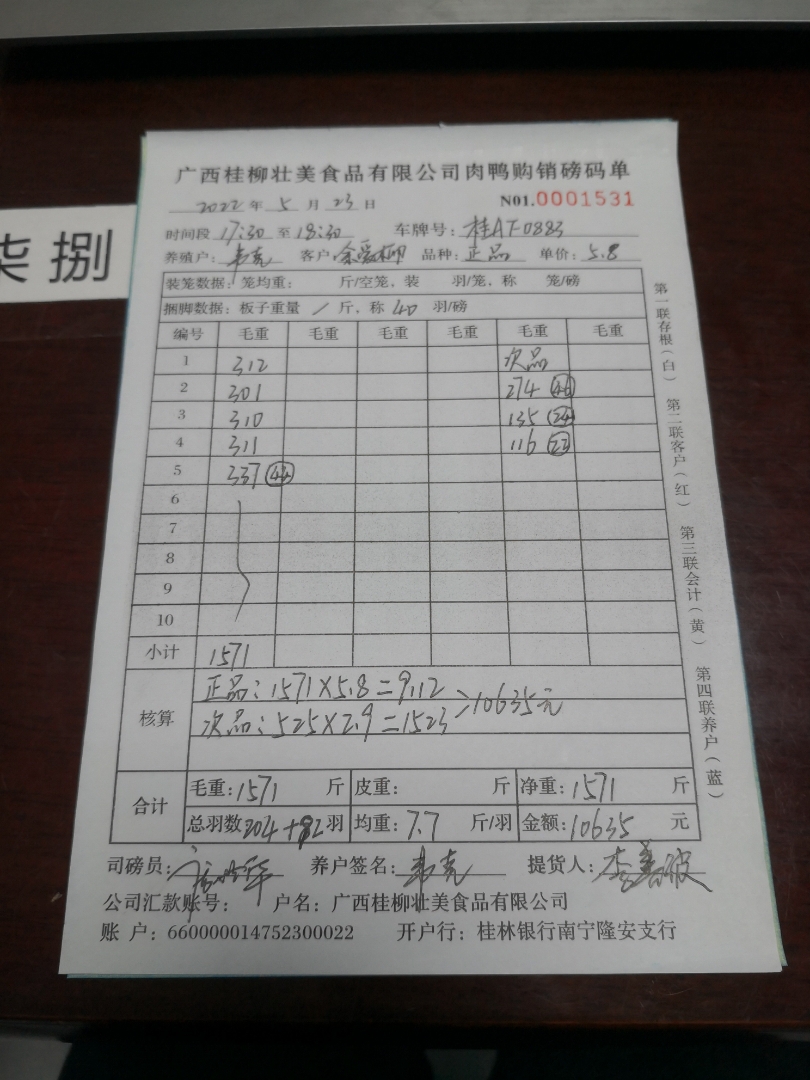 柒捌
广西桂柳壮美食品有限公司肉鸭购销磅码单
2022 年 5 月 23 日 N01.0001531
时间段 17:30 至 18:30 车牌号: 桂AT-0883
养殖户: 韦克 客户: 余爱柳 品种: 正品 单价: 5.8
装笼数据: 笼均重: 斤/空笼, 装 羽/笼, 称 笼/磅
捆脚数据: 板子重量 / 斤, 称 40 羽/磅
编号 毛重 毛重 毛重 毛重 毛重 毛重
1 312 次品
2 301 274 (46)
3 310 135 (24)
4 311 116 (22)
5 337 (44)
6
7
8
9
10
小计 1571
核算
正品: 1571×5.8=9112
次品: 525×2.9=1523 >10635元
合计
毛重: 1571 斤 皮重: 斤 净重: 1571 斤
总羽数 204+92 羽 均重: 7.7 斤/羽 金额: 10635 元
司磅员: 养户签名: 韦克 提货人: 李善波
公司汇款账号: 户名: 广西桂柳壮美食品有限公司
账 户: 660000014752300022 开户行: 桂林银行南宁隆安支行
第一联存根(白) 第二联客户(红) 第三联会计(黄) 第四联养户(蓝)